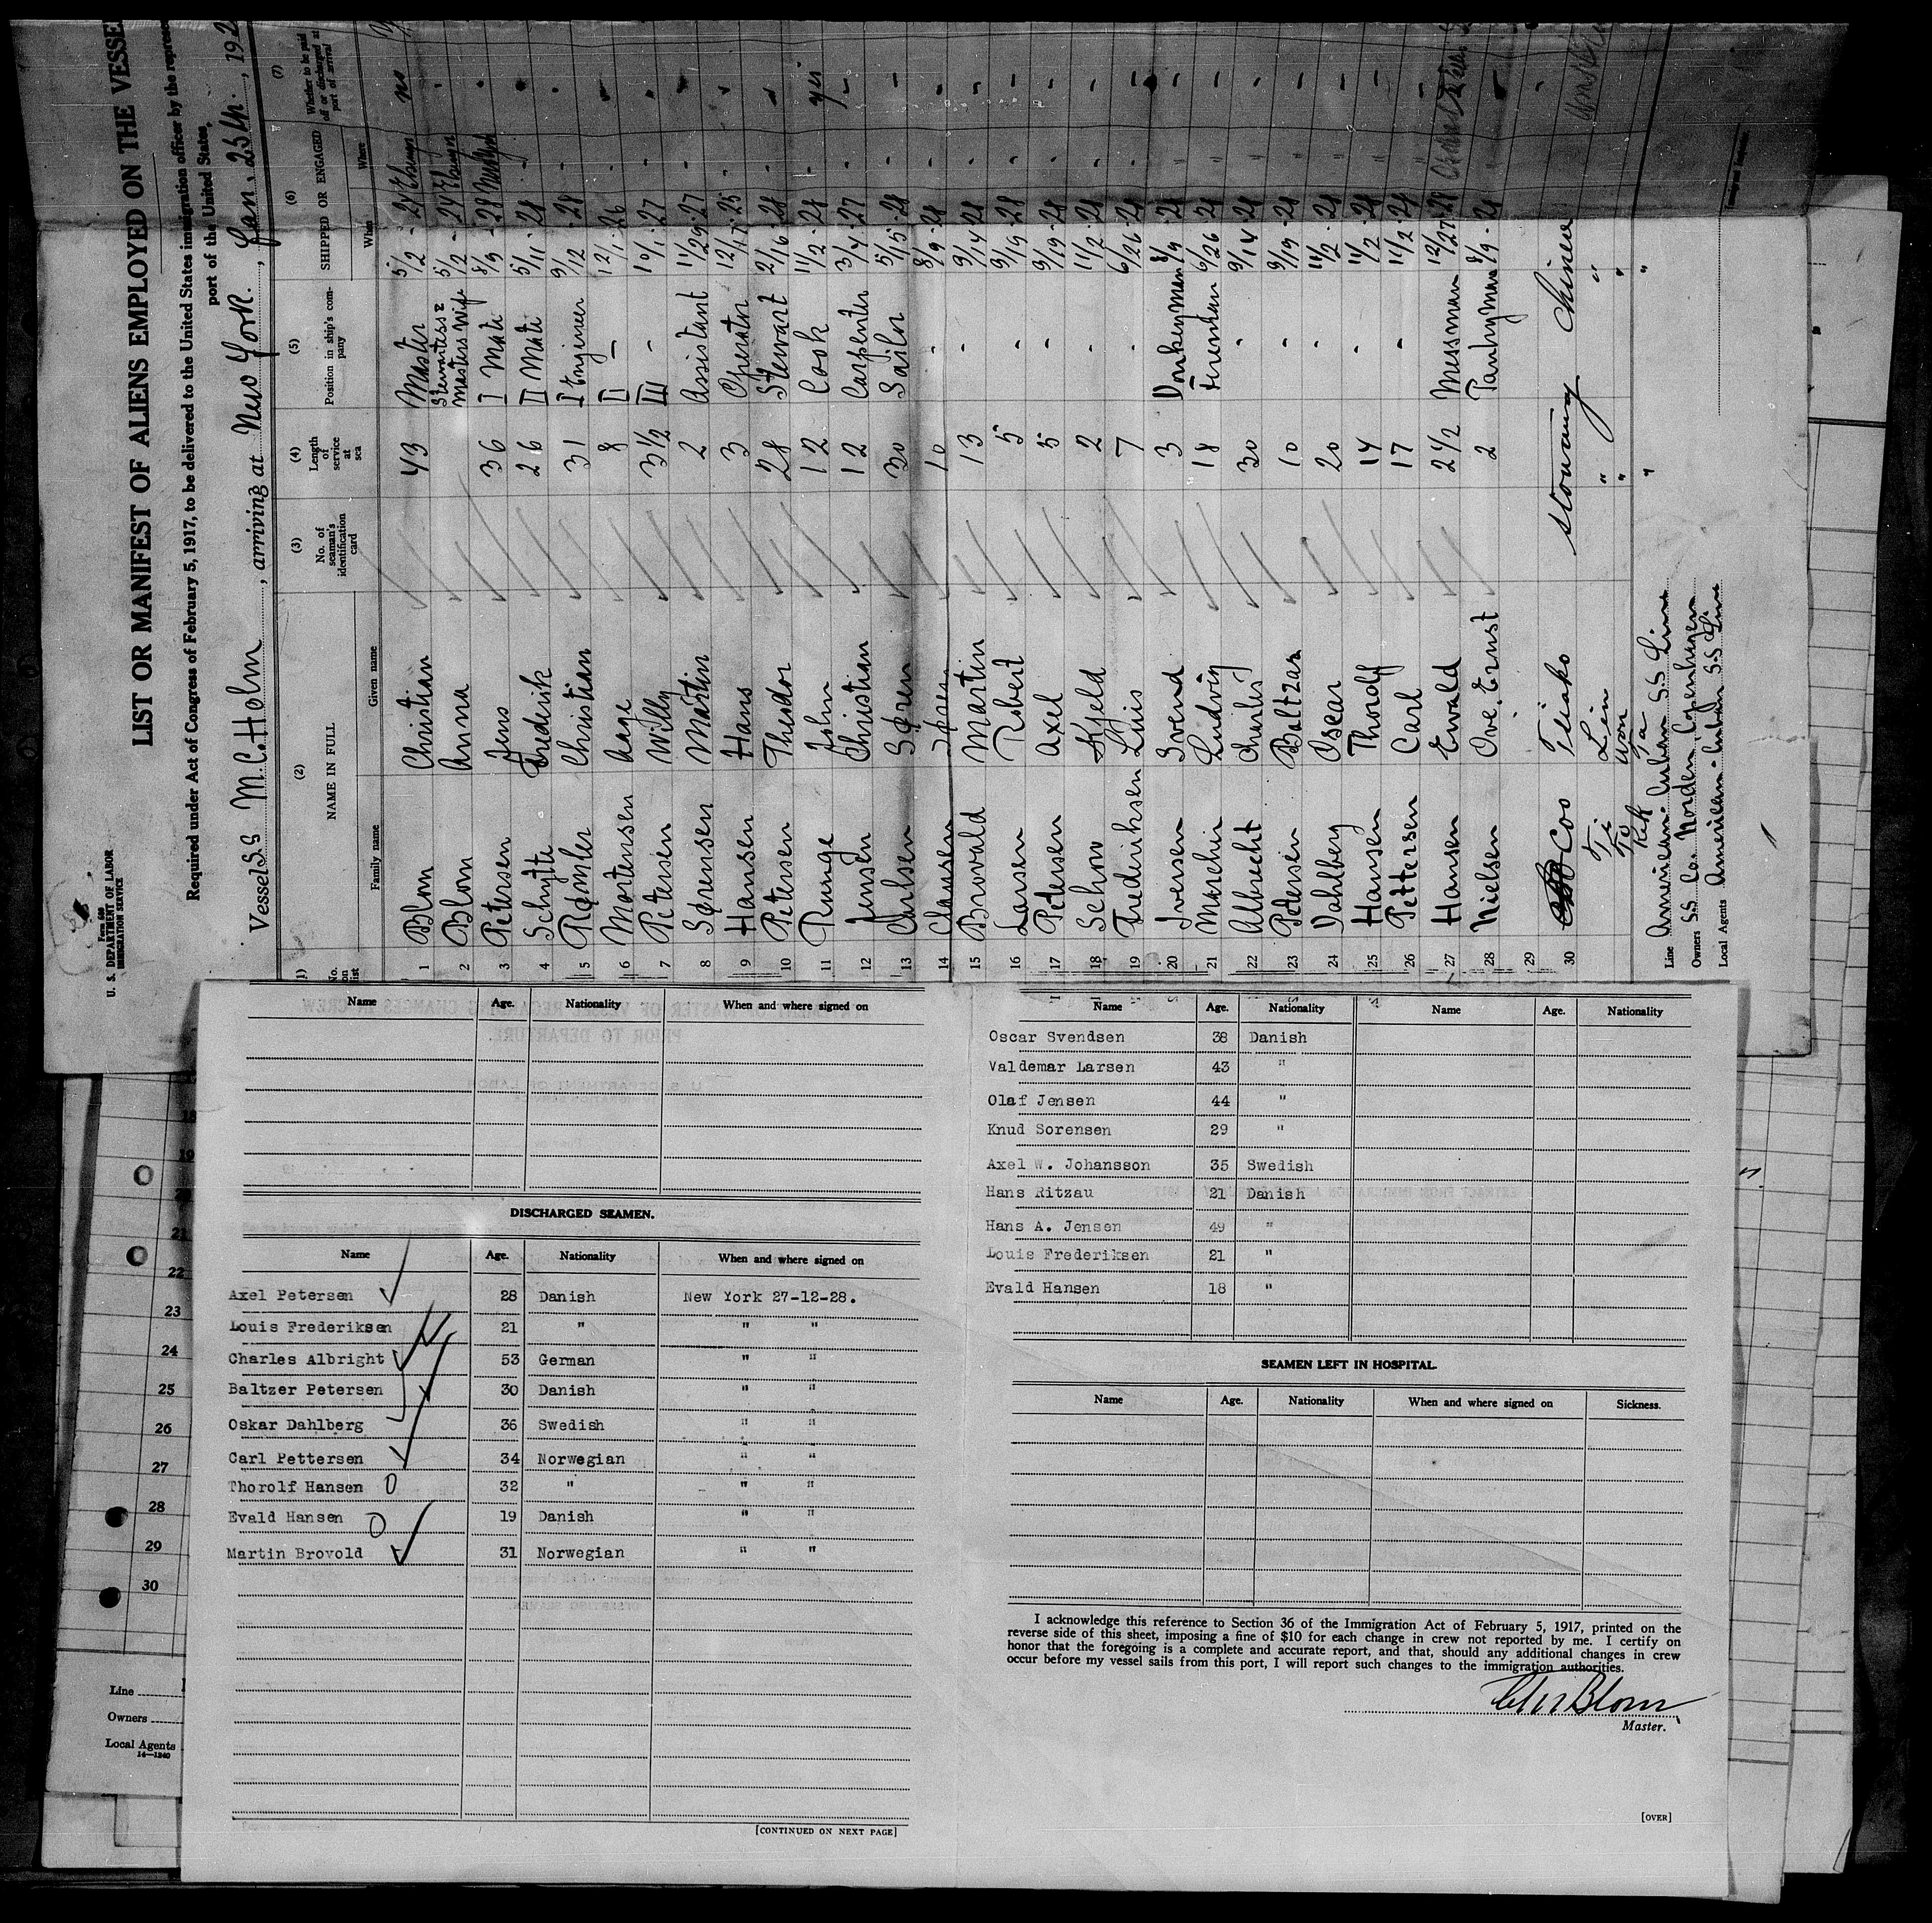 Form 680
U. S. DEPARTMENT OF LABOR
IMMIGRATION SERVICE
LIST OR MANIFEST OF ALIENS EMPLOYED ON THE VESSE
Required under Act of Congress of February 5, 1917, to be delivered to the United States immigration officer by the repres
port of the United States,
Vessel SS M.C. Holm, arriving at New York., Jan, 25th., 192
(1) (2) (3) (4) (5) (6) (7)
No. on list NAME IN FULL No. of seaman's identification card Length of service at sea Position in ship's company SHIPPED OR ENGAGED Whether to be paid off or discharged at port of arrival
Family name Given name When Where
1 Blom Christian 43 Master 5/2 - 24 no
2 Blom Anna Stewartess & masters wife 5/2 - 24
3 Petersen Jens 36 I Mate 8/9 - 28
4 Schytte Frederik 26 II Mate 5/11 - 28
5 Rømler Christian 31 I Engineer 9/12 - 28
6 Mortensen Aage 8 II - 12/1 - 26
7 Petersen Willy 3½ III - 10/1 - 27
8 Sørensen Martin 2 Assistant 11/29 - 27
9 Hansen Hans 3 Operator 12/17 - 25
10 Petersen Theodor 28 Stewart 2/16 - 28
11 Runge John 12 Cook 11/2 - 28 yes
12 Jensen Christian 12 Carpenter 3/4 - 27
13 Carlsen Søren 30 Sailor 5/15 - 28
14 Clausen 10 - 8/9 - 28
15 Brovald Martin 13 - 9/14 - 28
16 Larsen Robert 5 - 9/19 - 28
17 Petersen Axel 5 - 9/19 - 28
18 Schow Kjeld 2 - 11/2 - 28
19 Frederiksen Luis 7 - 6/26 - 28
20 Iversen Svend 3 Donkeyman 8/9 - 28
21 Marschin Ludvig 18 Fireman 6/26 - 28
22 Albrecht Charles 30 - 9/14 - 28
23 Petersen Baltzar 10 - 9/19 - 28
24 Dahlberg Oscar 20 - 11/2 - 28
25 Hansen Thorolf 14 - 11/2 - 28
26 Pettersen Carl 17 - 11/2 - 28
27 Hansen Ewald 2½ Messman 12/27 - 28
28 Nielsen Ove. Ernst 2 Pantryman 8/9 - 28
29
30 Coo Tsinko stowaway Chinese
Ti Lin " "
To Won " "
Ta " "
Line American Cuban SS Line
Owners SS Co. Norden Copenhagen
Local Agents American Cuban S.S Line
Name Age. Nationality When and where signed on
DISCHARGED SEAMEN.
Name Age. Nationality When and where signed on
Axel Petersen 28 Danish New York 27-12-28.
Louis Frederiksen 21 " " "
Charles Albright 53 German " "
Baltzer Petersen 30 Danish " "
Oskar Dahlberg 36 Swedish " "
Carl Pettersen 34 Norwegian " "
Thorolf Hansen 0 32 " " "
Evald Hansen 0 19 Danish " "
Martin Brovold 31 Norwegian " "
[CONTINUED ON NEXT PAGE]
Name Age. Nationality Name Age. Nationality
Oscar Svendsen 38 Danish
Valdemar Larsen 43 "
Olaf Jensen 44 "
Knud Sorensen 29 "
Axel W. Johansson 35 Swedish
Hans Ritzau 21 Danish
Hans A. Jensen 49 "
Louis Frederiksen 21 "
Evald Hansen 18 "
SEAMEN LEFT IN HOSPITAL.
Name Age. Nationality When and where signed on Sickness.
I acknowledge this reference to Section 36 of the Immigration Act of February 5, 1917, printed on the
reverse side of this sheet, imposing a fine of $10 for each change in crew not reported by me. I certify on
honor that the foregoing is a complete and accurate report, and that, should any additional changes in crew
occur before my vessel sails from this port, I will report such changes to the immigration authorities.
Chr Blom
Master.
[OVER]
17
18
19
20
21
22
23
24
25
26
27
28
29
30
Line
Owners
Local Agents
14—1240